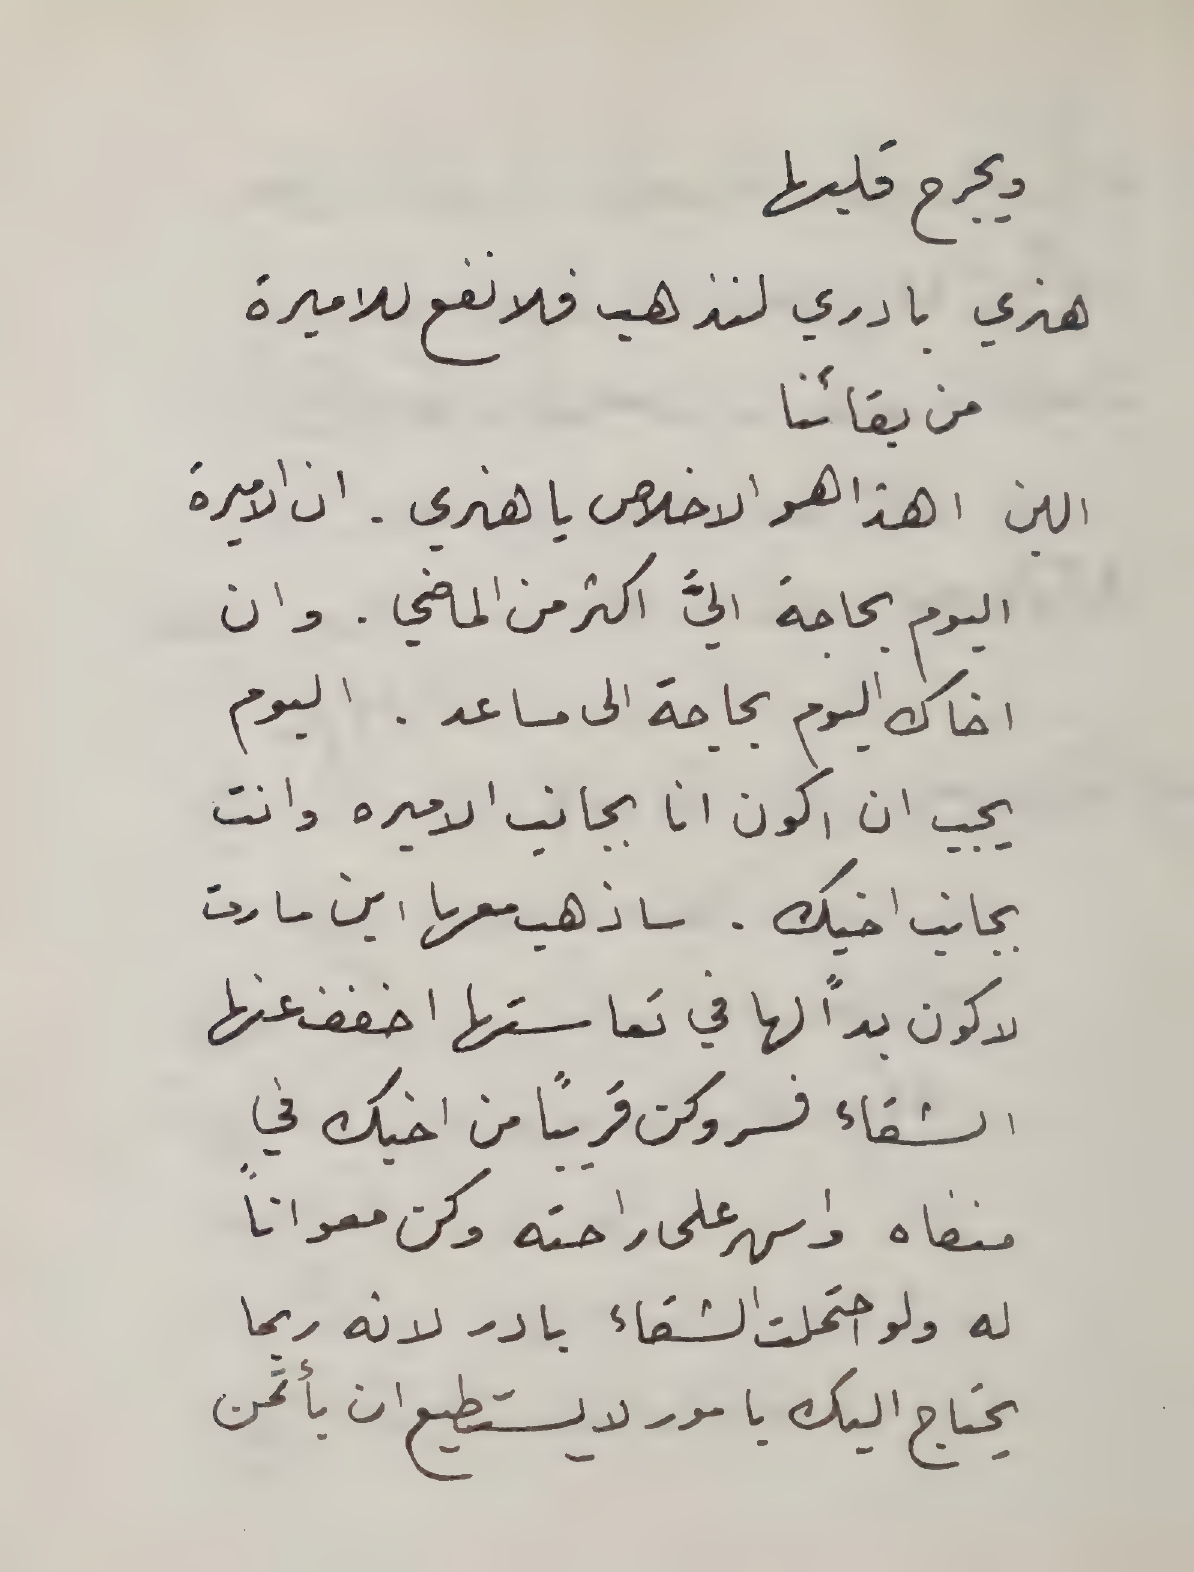 ويجرح قلبها
هنري بادري لنذهب فلا نفع للاميرة
من بقائنا
الين اهذا هو الاخلاص يا هنري . ان الاميرة
اليوم بحاجة اليَّ اكثر من الماضي . وان
اخاك اليوم بحاجة الى مساعد . اليوم
يجب ان اكون انا بجانب الاميره وانت
بجانب اخيك . ساذهب معها اين سارت
لاكون بداً لها في تعاستها اخفف عنها
الشقاء فسر وكن قريباً من اخيك في
منفاه واسهر على راحته وكن معواناً
له ولو احتملت الشقاء بادر لانه ربما
يحتاج اليك بامور لا يستطيع ان يأتمن